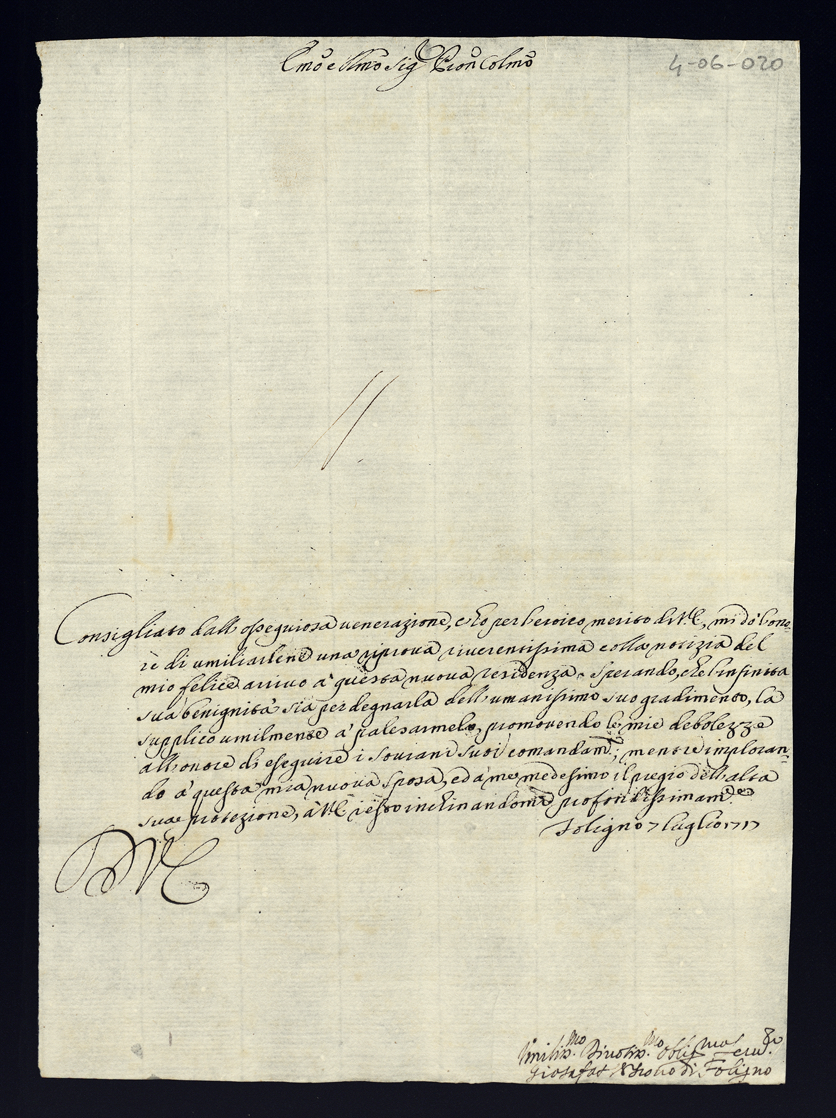 Emo e Rmo Sig.r Pron Colmo
4-06-020
Consigliato dall'ossequiosa venerazione, che ho per l'eroico merito di V.E., mi dò l'ono-
re di umiliarlene una riprova riverentissima colla notizia del
mio felice arrivo à questa nuova residenza. Sperando, che l'infinita
sua benignità sia per degnarla dell'umanissimo suo gradimento, la
supplico umilmente à palesarmelo, promovendo le mie debolezze
all'onore di eseguire i sovrani suoi comandam.ti; mentre imploran-
do à questa mia nuova Sposa, ed à me medesimo il pregio dell'alta
sua protezione, à V.E. resto inchinandomi profondissimam.te
Foligno 7 luglio 1717
D V E
Umiliss.mo Divotiss.mo Obblig.mo Serv.re
Giosafat Vescovo di Foligno